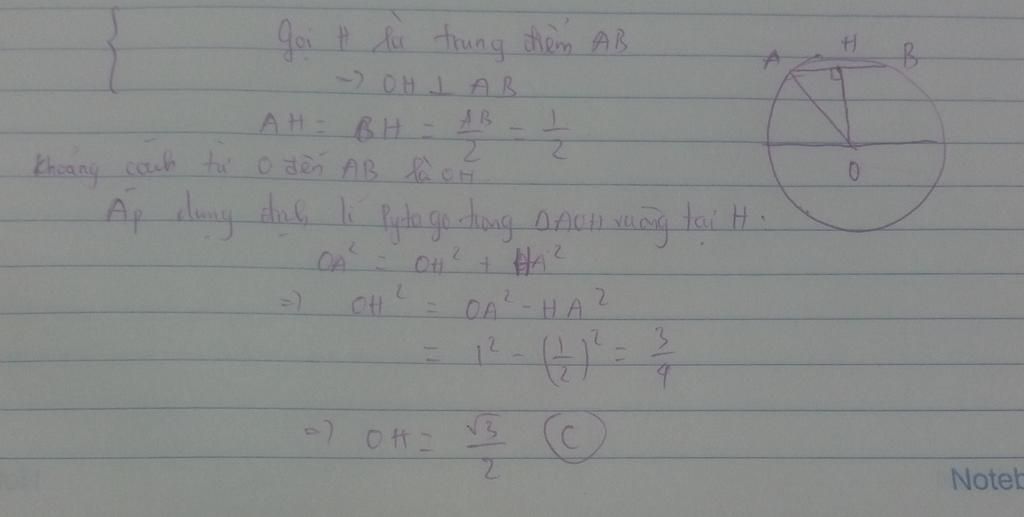 Gọi H là trung điểm AB
→ OH ⊥ AB
AH = BH = AB/2 = 1/2
Khoảng cách từ O đến AB là OH
Áp dụng định lí Pytago trong ΔAOH vuông tại H.
OA² = OH² + HA²
=> OH² = OA² - HA²
= 1² - (1/2)² = 3/4
=> OH = √3/2 C
A H B
O
Noteb